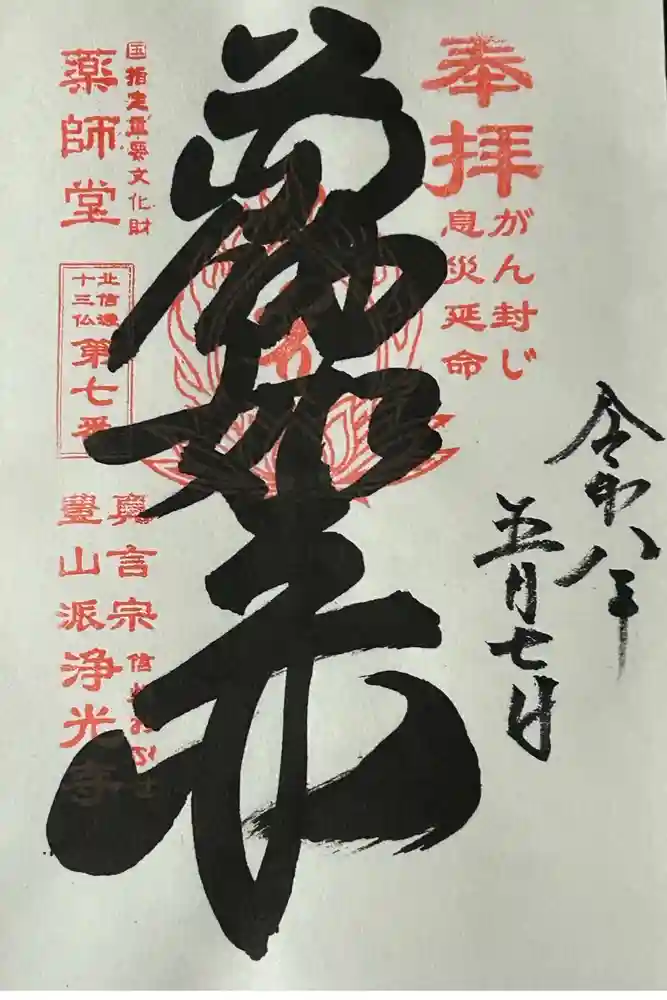 奉拝
がん封じ
息災延命
令和八年
五月七日
薬師如来
国指定重要文化財
薬師堂
北信濃
十三仏
第七番
真言宗
豊山派
浄光寺